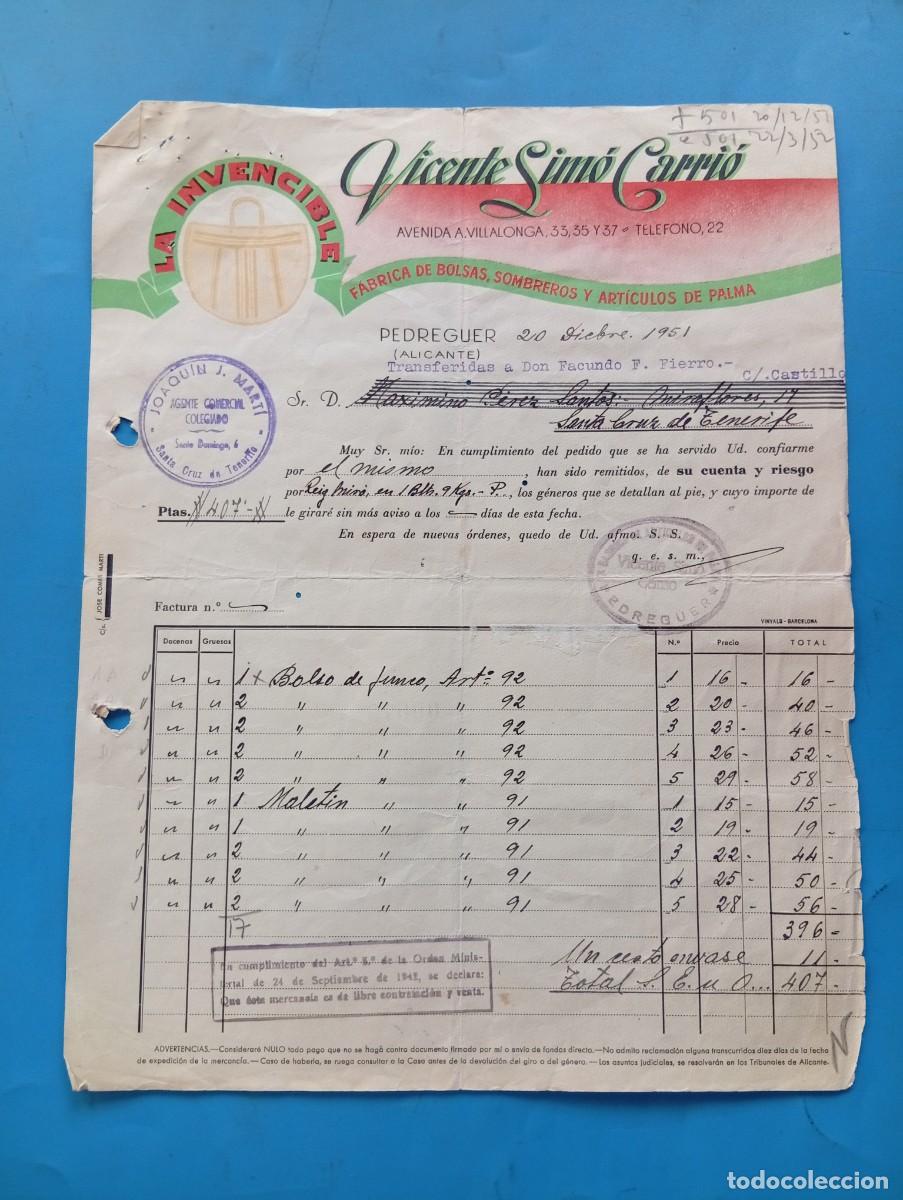 + 501 20/12/51
e 501 22/3/52
LA INVENCIBLE
Vicente Simó Carrió
AVENIDA A. VILLALONGA, 33, 35 Y 37 - TELEFONO, 22
FÁBRICA DE BOLSAS, SOMBREROS Y ARTÍCULOS DE PALMA
PEDREGUER 20 Dicbre. 1951
(ALICANTE)
Transferidas a Don Facundo F. Fierro.-
C/.Castillo
Sr. D. Maximino Pérez Santos- Miraflores, 17
Santa Cruz de Tenerife
JOAQUÍN J. MARTÍ
AGENTE COMERCIAL
COLEGIADO
Santo Domingo, 6
Santa Cruz de Tenerife
Muy Sr. mío: En cumplimiento del pedido que se ha servido Ud. confiarme
por el mismo, han sido remitidos, de su cuenta y riesgo
por Reig Miró, en 1 Blto. 9 Kgs.- P., los géneros que se detallan al pie, y cuyo importe de
Ptas. 407'-
le giraré sin más aviso a los días de esta fecha.
En espera de nuevas órdenes, quedo de Ud. afmo. S. S.
q. e. s. m.,
Vicente Simó
PEDREGUER
C/s. JOSE COMES MARTI
Factura n.º
VINYALS - BARCELONA
Docenas Gruesas N.º Precio TOTAL
" " 1 + Bolso de junco, Artº 92 1 16 - 16 -
" " 2 " " " 92 2 20 - 40 -
" " 2 " " " 92 3 23 - 46 -
" " 2 " " " 92 4 26 - 52 -
" " 2 " " " 92 5 29 - 58 -
" " 1 Maletin " " 91 1 15 - 15 -
" " 1 " " " 91 2 19 - 19 -
" " 2 " " " 91 3 22 - 44 -
" " 2 " " " 91 4 25 - 50 -
" " 2 " " " 91 5 28 - 56 -
17 396 -
Un cesto envase 11 -
Total S. E. u O... 407 -
En cumplimiento del Art.º 5.º de la Orden Minis-
terial de 24 de Septiembre de 1942, se declara:
Que ésta mercancía es de libre contratación y venta.
ADVERTENCIAS.—Consideraré NULO todo pago que no se haga contra documento firmado por mí o envio de fondos directo.—No admito reclamación alguna transcurridos diez días de la fecha
de expedición de la mercancía.—Caso de haberla, se ruega consultar a la Casa antes de la devolución del giro o del género.—Los asuntos judiciales, se resolverán en los Tribunales de Alicante.
todocoleccion